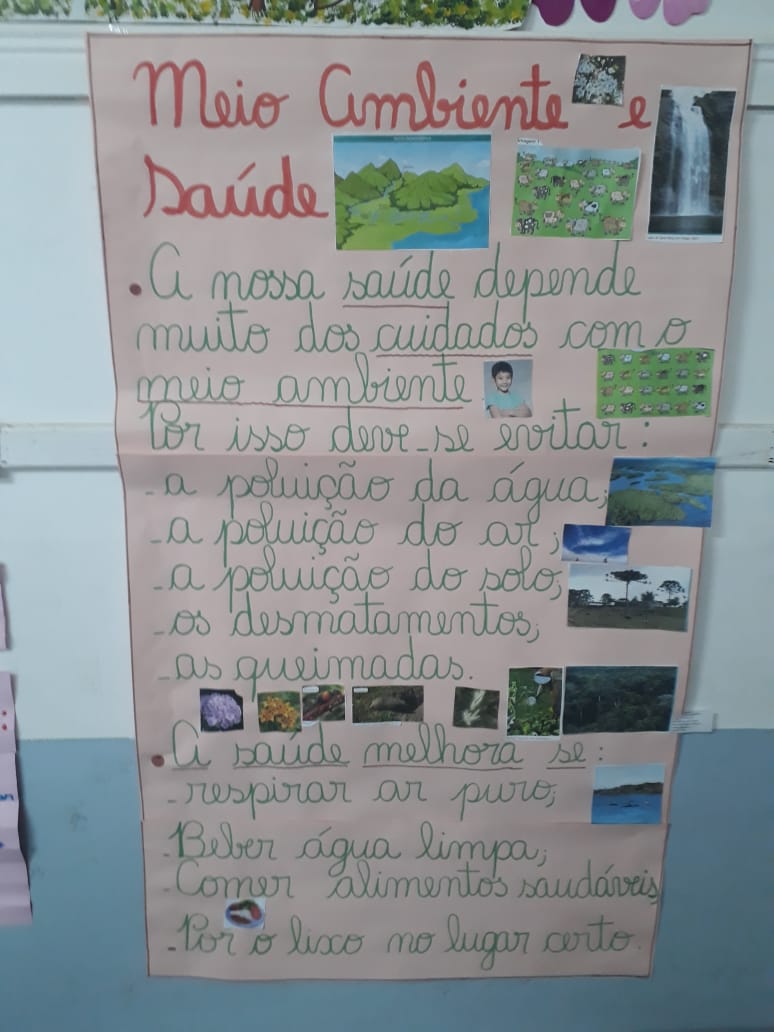 Meio Ambiente e
Saúde
• A nossa saúde depende
muito dos cuidados com o
meio ambiente
Por isso deve-se evitar:
- a poluição da água;
- a poluição do ar;
- a poluição do solo;
- os desmatamentos;
- as queimadas.
• A saúde melhora se:
- respirar ar puro;
- Beber água limpa;
- Comer alimentos saudáveis,
- Por o lixo no lugar certo.